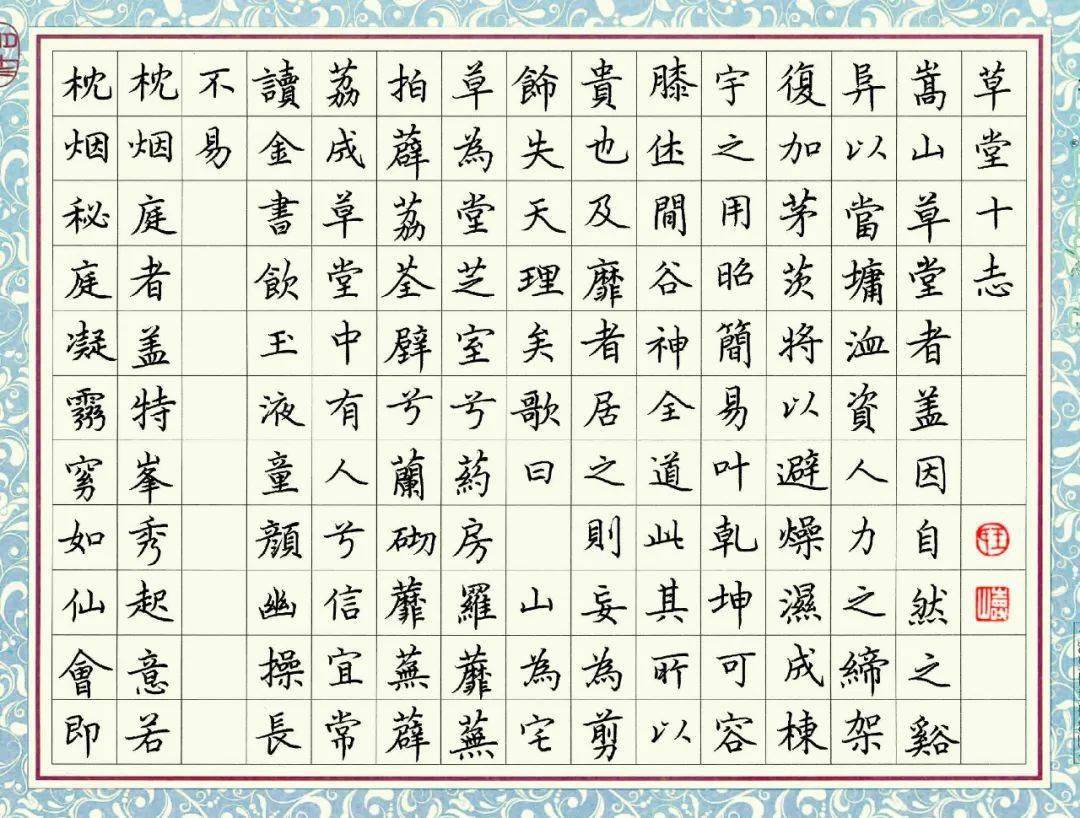 草堂十志
嵩山草堂者盖因自然之谿
阜以當墉洫資人力之締架
復加茅茨將以避燥濕成棟
宇之用昭簡易叶乹坤可容
膝休閒谷神全道此其所以
貴也及靡者居之則妄為剪
飾失天理矣歌曰 山為宅
草為堂芝室兮葯房羅蘼蕪
拍薜荔荃壁兮蘭砌蘼蕪薜
荔成草堂中有人兮信宜常
讀金書飲玉液童顔幽操長
不易
枕烟庭者盖特峯秀起意若
枕烟秘庭凝霛窈如仙會即